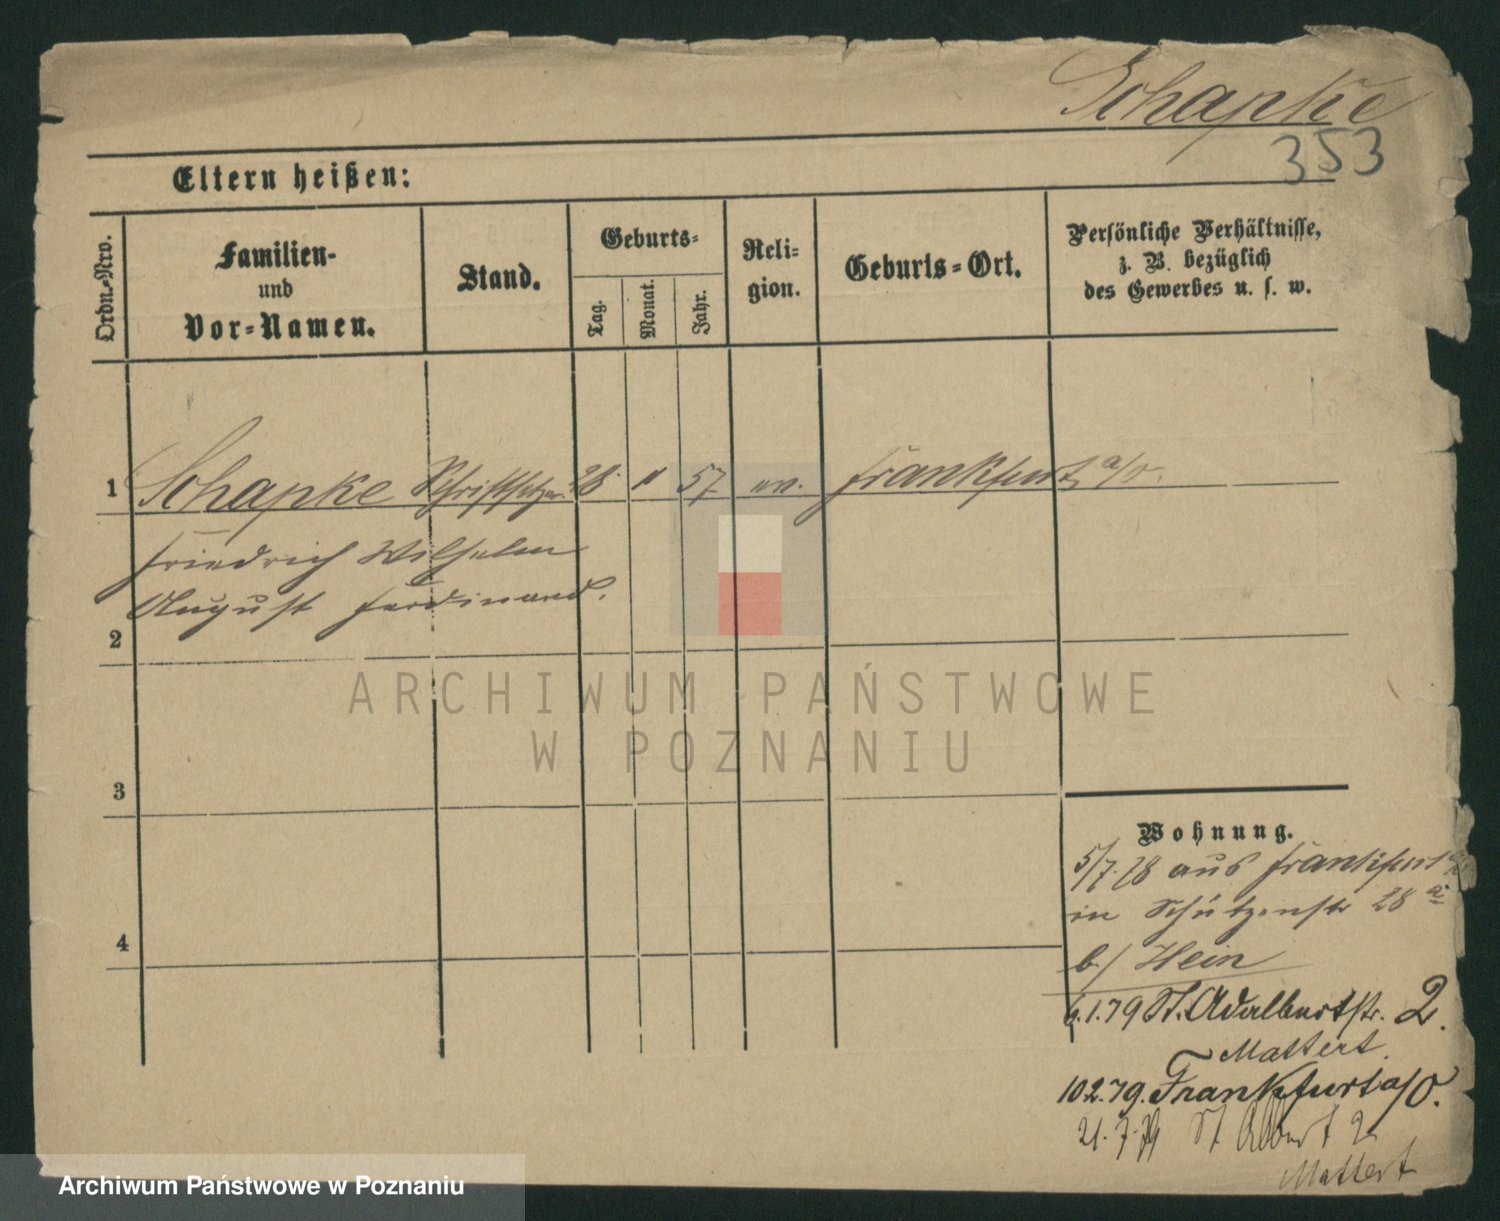 Schapke
353
Eltern heißen:
Ordn.-Nro.
Familien-
und
Vor-Namen.
Stand.
Geburts-
Tag.
Monat.
Jahr.
Reli-
gion.
Geburts-Ort.
Persönliche Verhältnisse,
z. B. bezüglich
des Gewerbes u. s. w.
1 Schapke Schriftsetzer 28. 57 ev. Frankfurt a/O.
Friedrich Wilhelm
August Ferdinand.
2
3
4
ARCHIWUM PAŃSTWOWE
W POZNANIU
Wohnung.
5/7.78 aus Frankfurt
in Schützenstr 28 a
b/ Hein
6.1.79 St. Adalbertstr. 2.
Mattert.
10.2.79. Frankfurt a/O.
21.7.79 St Adbert 2
Mattert
Archiwum Państwowe w Poznaniu